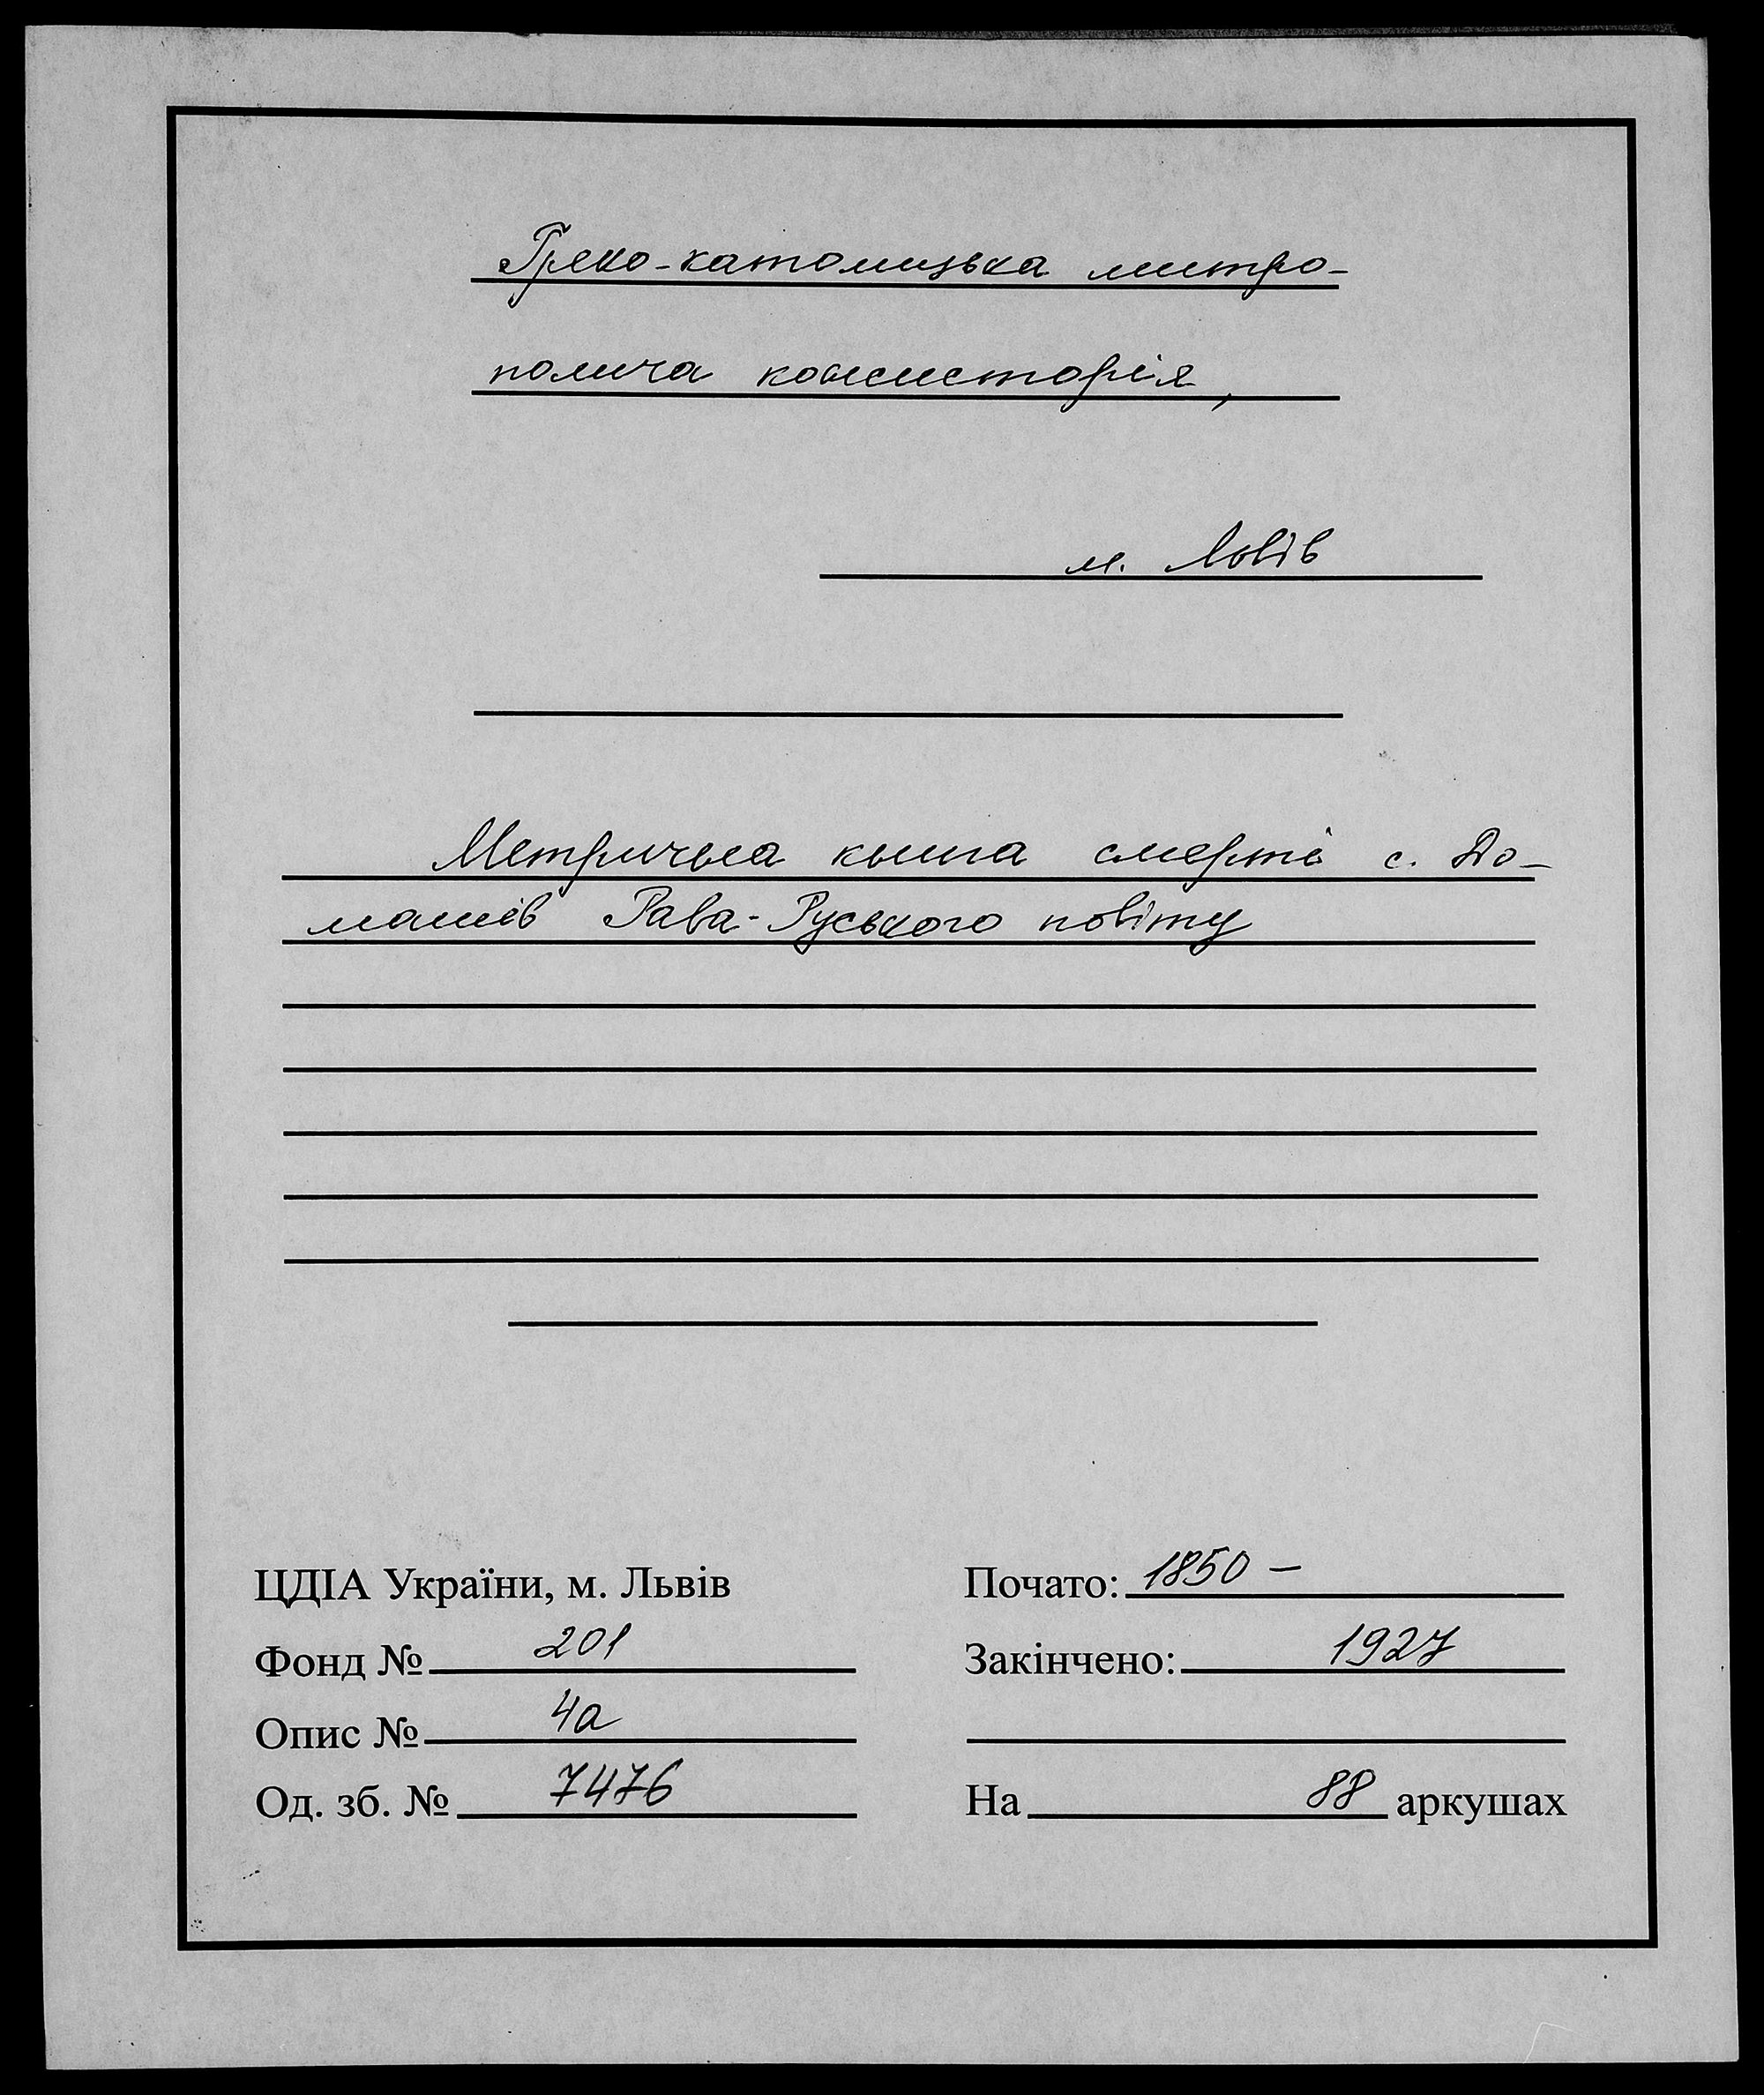 Греко-католицька митро-
полича консисторія,
м. Львів
Метрична книга смерті с. До-
машів Рава-Руського повіту
ЦДІА України, м. Львів
Фонд № 201
Опис № 4а
Од. зб. № 7476
Почато: 1850 –
Закінчено: 1927
На 88 аркушах